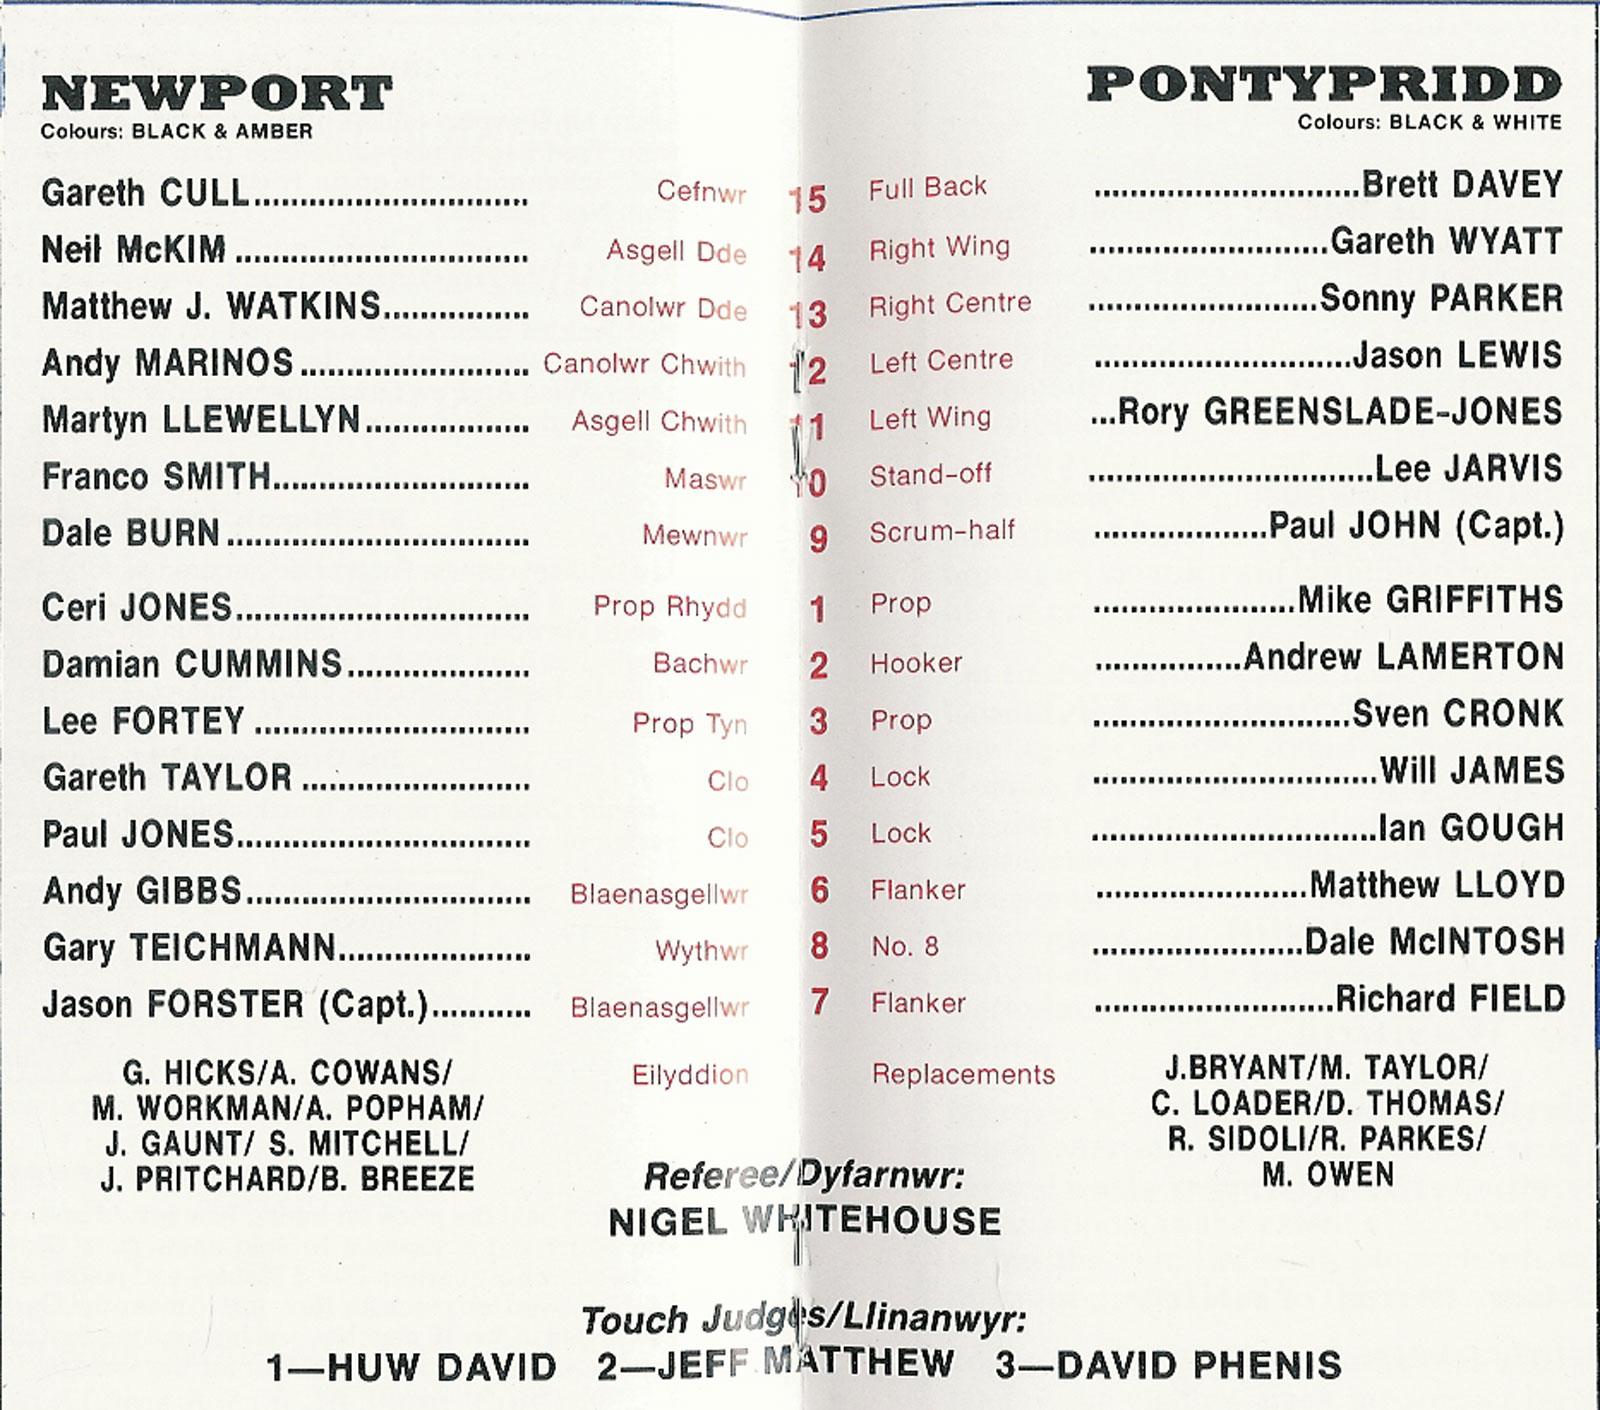 NEWPORT PONTYPRIDD
Colours: BLACK & AMBER Colours: BLACK & WHITE
Gareth CULL.............................. Cefnwr 15 Full Back .............................Brett DAVEY
Neil McKIM ................................ Asgell Dde 14 Right Wing ..........................Gareth WYATT
Matthew J. WATKINS................ Canolwr Dde 13 Right Centre .........................Sonny PARKER
Andy MARINOS ......................... Canolwr Chwith 12 Left Centre ............................Jason LEWIS
Martyn LLEWELLYN.................. Asgell Chwith 11 Left Wing ...Rory GREENSLADE-JONES
Franco SMITH............................ Maswr 10 Stand-off ...............................Lee JARVIS
Dale BURN ................................. Mewnwr 9 Scrum-half ...................Paul JOHN (Capt.)
Ceri JONES................................ Prop Rhydd 1 Prop ......................Mike GRIFFITHS
Damian CUMMINS.................... Bachwr 2 Hooker ................Andrew LAMERTON
Lee FORTEY .............................. Prop Tyn 3 Prop ............................Sven CRONK
Gareth TAYLOR ......................... Clo 4 Lock ...............................Will JAMES
Paul JONES................................ Clo 5 Lock ...............................Ian GOUGH
Andy GIBBS............................... Blaenasgellwr 6 Flanker .......................Matthew LLOYD
Gary TEICHMANN..................... Wythwr 8 No. 8 .......................Dale McINTOSH
Jason FORSTER (Capt.)........... Blaenasgellwr 7 Flanker ..........................Richard FIELD
G. HICKS/A. COWANS/ Eilyddion Replacements J.BRYANT/M. TAYLOR/
M. WORKMAN/A. POPHAM/ C. LOADER/D. THOMAS/
J. GAUNT/ S. MITCHELL/ R. SIDOLI/R. PARKES/
J. PRITCHARD/B. BREEZE M. OWEN
Referee/Dyfarnwr:
NIGEL WHITEHOUSE
Touch Judges/Llinanwyr:
1—HUW DAVID 2—JEFF MATTHEW 3—DAVID PHENIS